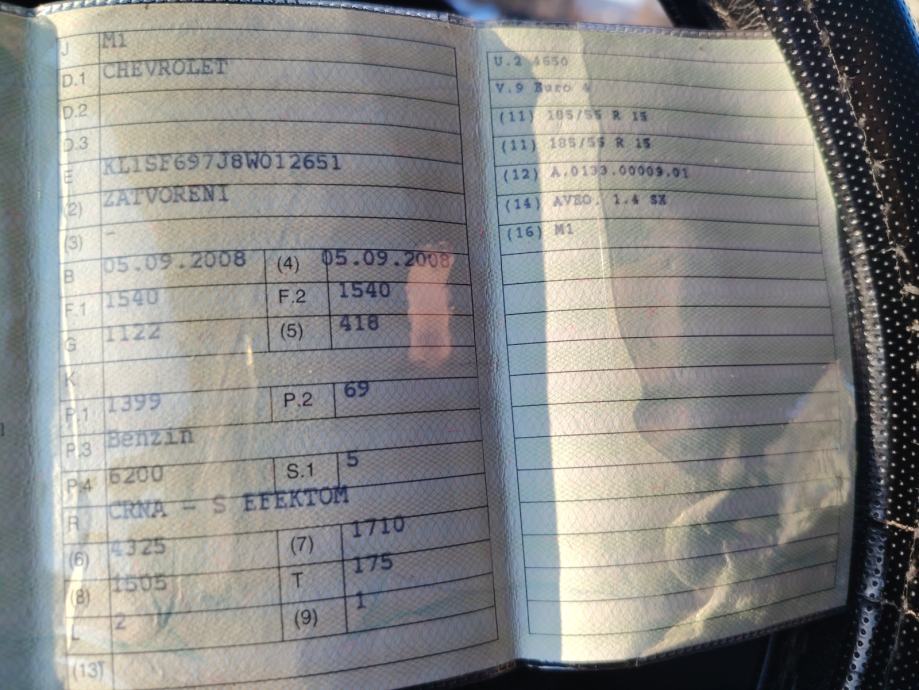 J M1
D.1 CHEVROLET
D.2
D.3
E KL1SF697J8W012651
(2) ZATVORENI
(3) -
B 05.09.2008 (4) 05.09.2008
F.1 1540 F.2 1540
G 1122 (5) 418
K
P.1 1399 P.2 69
P.3 Benzin
P.4 6200 S.1 5
R CRNA - S EFEKTOM
(6) 4325 (7) 1710
(8) 1505 T 175
L 2 (9) 1
(13)
U.2 4650
V.9 Euro 4
(11) 185/55 R 15
(11) 185/55 R 15
(12) A.0133.00009.01
(14) AVEO, 1.4 SX
(16) M1